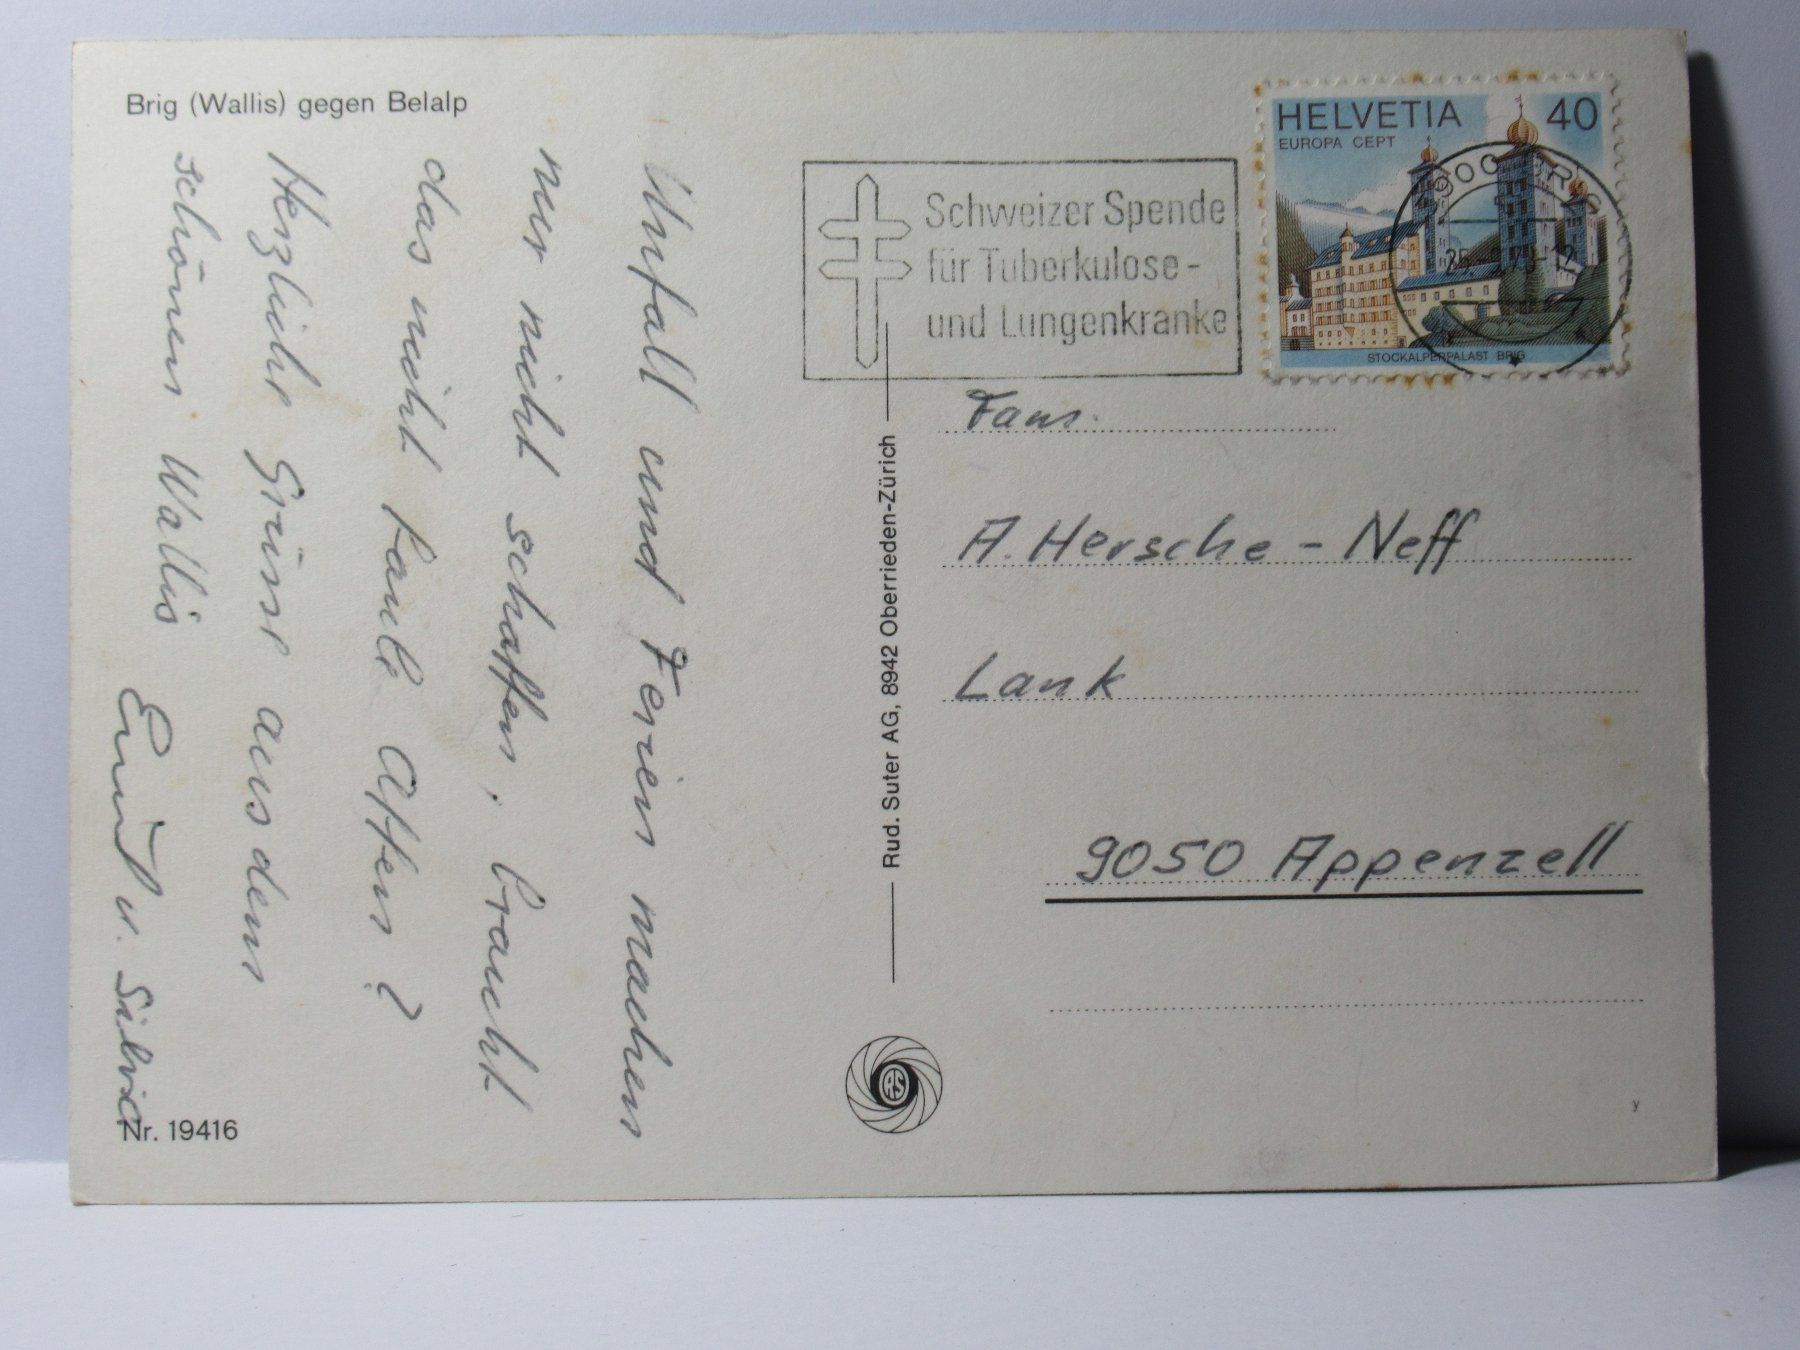 Brig (Wallis) gegen Belalp
Unfall und Ferien machen
nur nicht schaffen, braucht
das nicht
Herzliche Grüsse aus dem
schönen Wallis
u. Silvia
Nr. 19416
Rud. Suter AG, 8942 Oberrieden-Zürich
RS
Schweizer Spende
für Tuberkulose-
und Lungenkranke
HELVETIA 40
EUROPA CEPT
STOCKALPERPALAST BRIG
Fam.
A. Hersche-Neff
Lank
9050 Appenzell
y